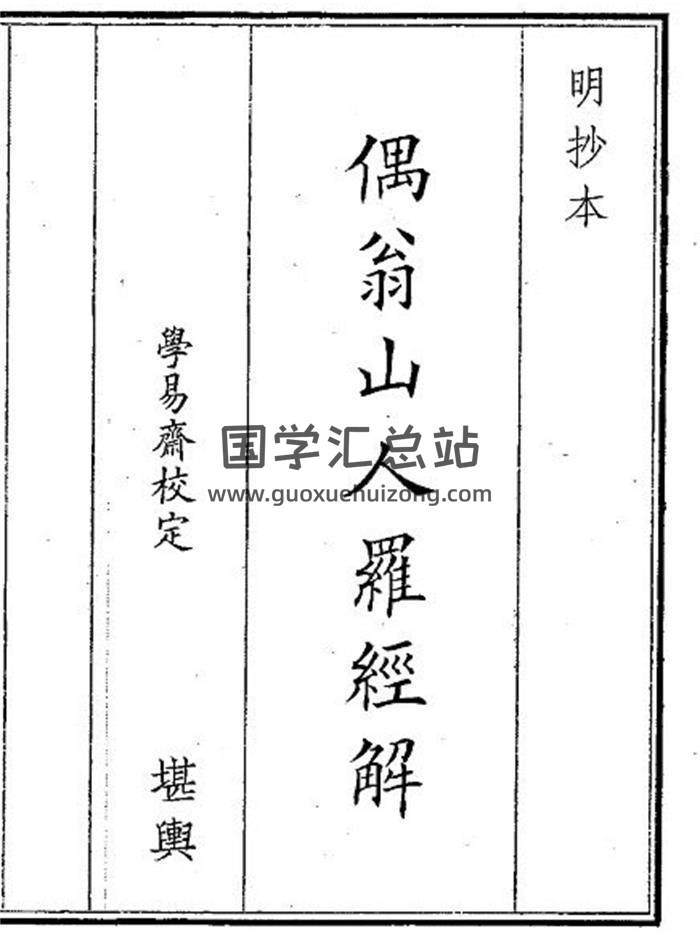 明抄本
偶翁山人羅經解
學易齋校定
堪輿
国学汇总站
www.guoxuehuizong.com